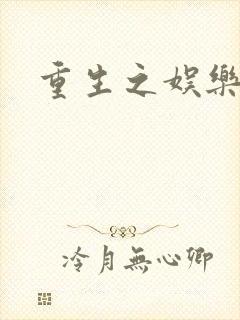 重生之娱樂
冷月無心卿